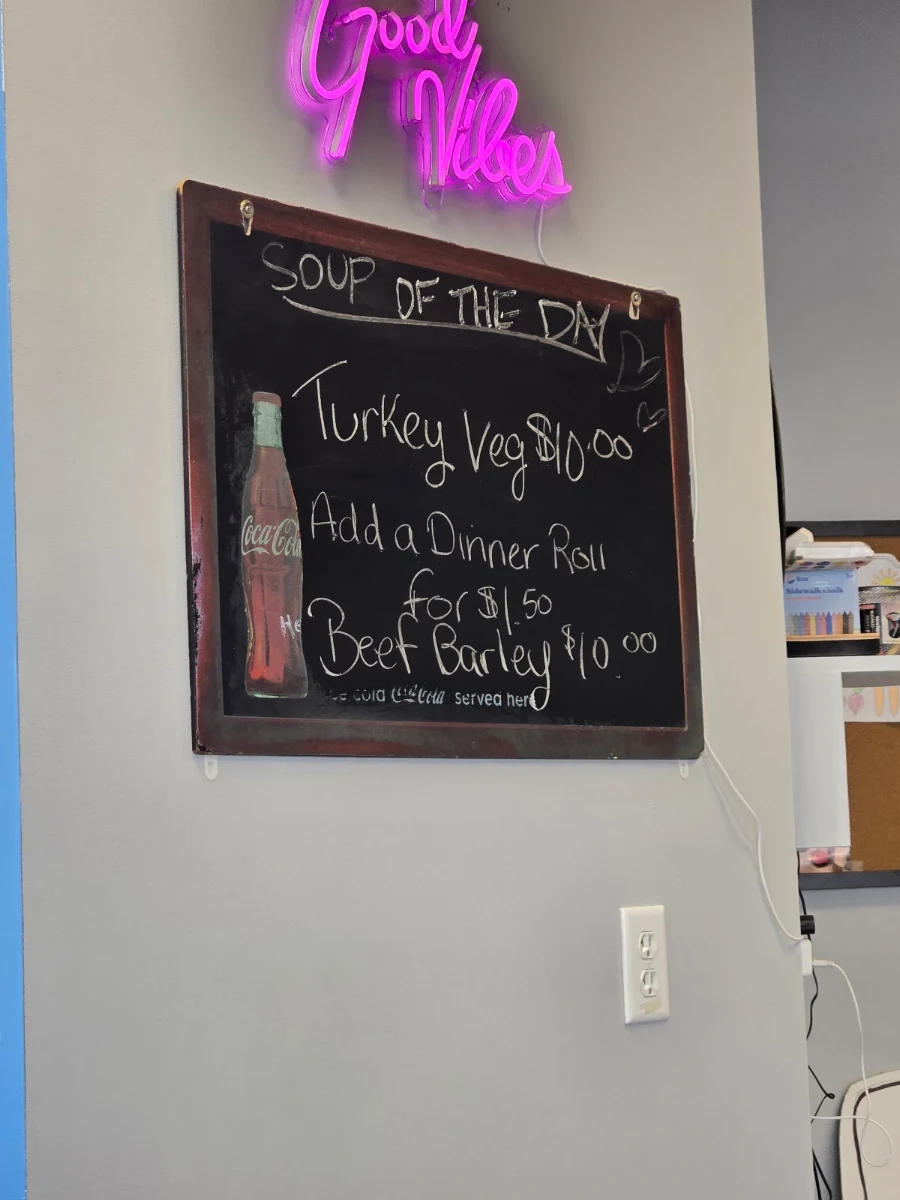 Good
Vibes
SOUP OF THE DAY
Turkey Veg $10.00
Coca-Cola
Add a Dinner Roll
for $1.50
Beef Barley $10.00
cold Coca-Cola served here
Sidewalk chalk